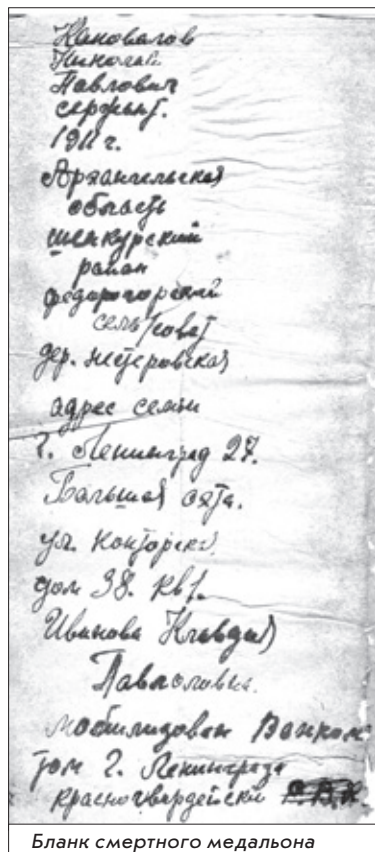 Коновалов
Николай
Павлович
сержант.
1911 г.
Архангельская
область
шенкурский
район
федорогорский
сель/совет
дер. нестеровская
адрес семьи
г. Ленинград 27.
Большая охта.
ул. Конторска
дом 38. кв 1.
Иванова Клавдия
Павловна.
мобилизован Воэнком
том г. Ленинграда
красногвардейский
Бланк смертного медальона